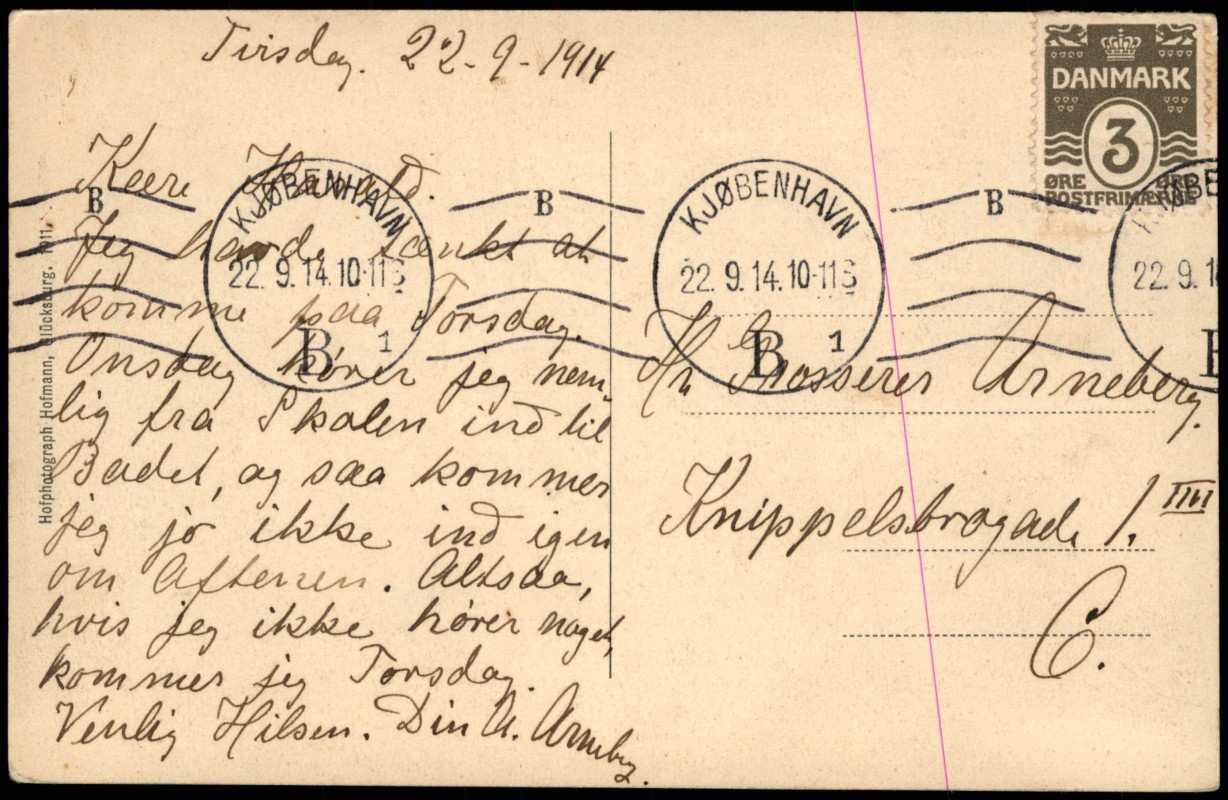 Tirsdag. 22-9-1914
Kære Harald.
Jeg havde tænkt at
komme paa Torsdag.
Onsdag kører jeg nem
lig fra Skolen ind til
Badet, og saa kommer
jeg jo ikke ind igen
om Aftenen. Altsaa,
hvis jeg ikke hører noget,
kommer jeg Torsdag.
Venlig Hilsen. Din A. Arneberg.
Hofphotograph Hofmann, Glücksburg. 1911.
DANMARK
3
ØRE ØRE
POSTFRIMÆRKE
B
KJØBENHAVN
22. 9. 14. 10-11
B 1
B
KJØBENHAVN
22. 9. 14. 10-11
B 1
B
22. 9. 1
Hr. Grosserer Arneberg.
Knippelsbrogade 1. IIII
C.